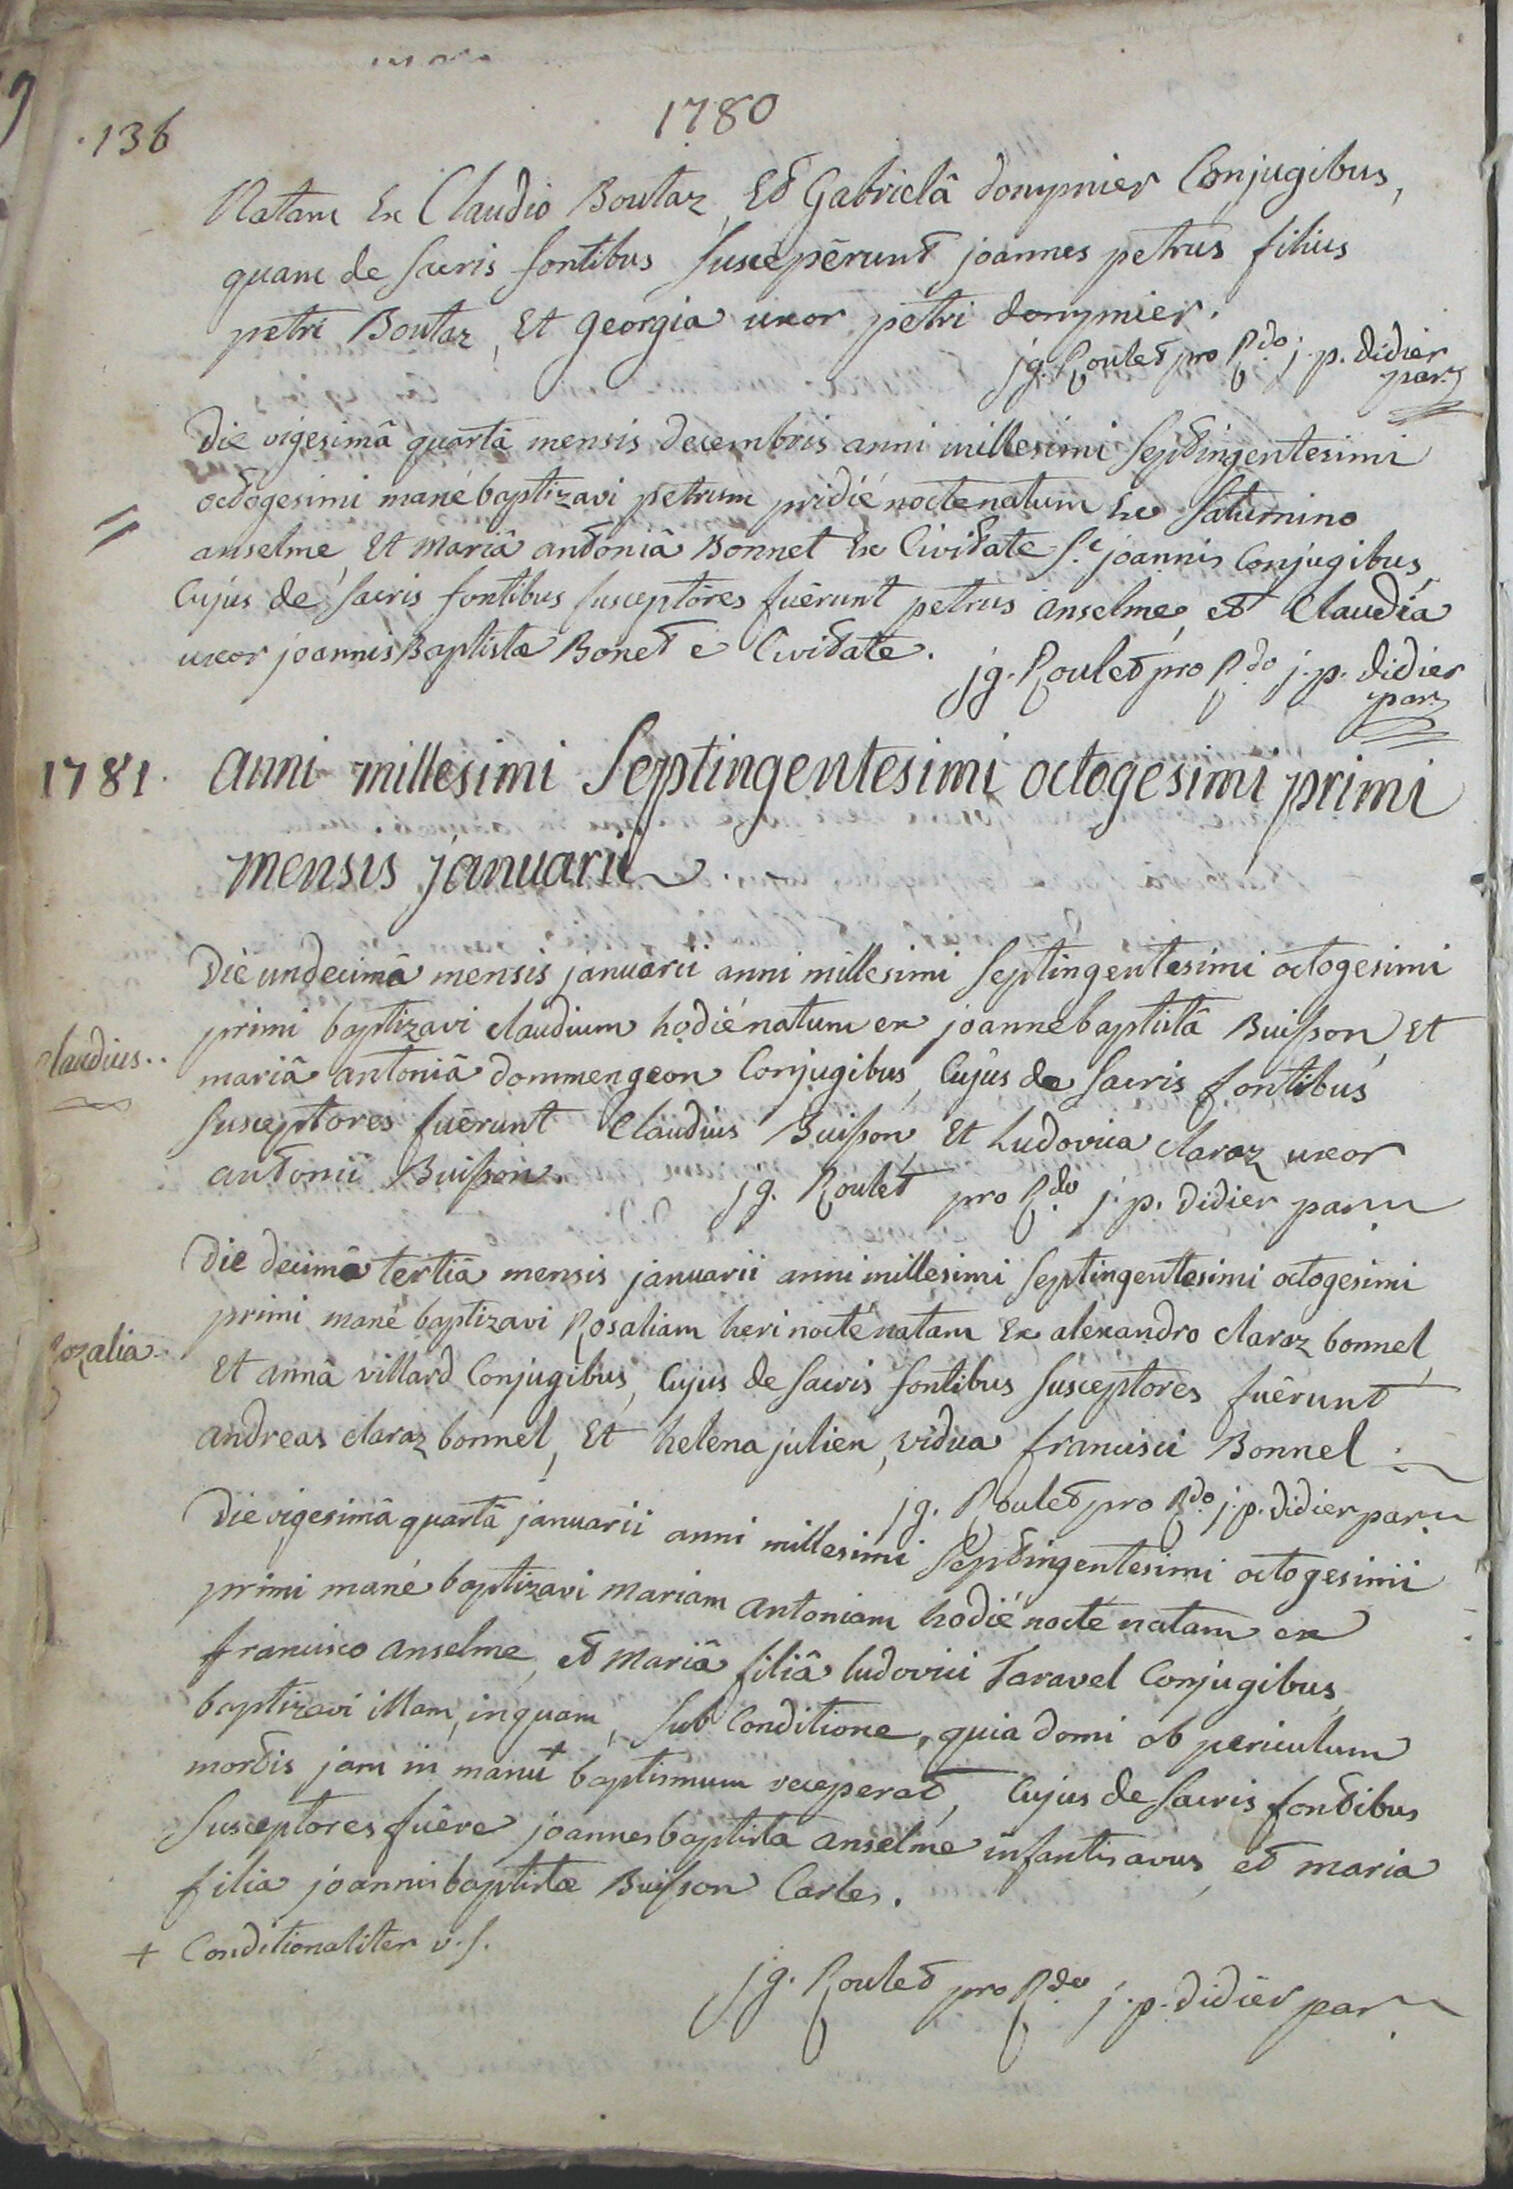 1780
.136
Natam Ex Claudio Boutaz, Et Gabrielâ donymier Conjugibus,
quam de sacris fontibus suscepêrunt joannes petrus filius
petri Boutaz, Et georgia uxor petri donymier.
jg. Roulet pro Rdo j. p. didier
par.
die vigesimâ quartâ mensis decembris anni millesimi septingentesimi
octogesimi manè baptizavi petrum pridié nocte natum Ex Saturnino
anselme, Et mariâ antoniâ Bonnet Ex Civitate Sti joannis Conjugibus,
Cujus de sacris fontibus susceptôres fuêrunt petrus anselme, et Claudia
uxor joannis Baptistæ Bonet è Civitate.
jg. Roulet pro Rdo j. p. didier
par.
1781. anni millesimi septingentesimi octogesimi primi
mensis januarii
Die undecimâ mensis januarii anni millesimi septingentesimi octogesimi
primi baptizavi claudium hodié natum ex joanne baptistâ Buisson, Et
Claudius..
mariâ antoniâ dommengeon Conjugibus, Cujus de sacris fontibus
susceptores fuêrunt Claudius Buisson, Et Ludovica claraz uxor
antonii Buisson.
jg. Roulet pro Rdo j. p. didier par.
Die decimâ tertiâ mensis januarii anni millesimi septingentesimi octogesimi
primi manè baptizavi Rosaliam heri nocte natam Ex alexandro claraz bonnel,
Rozalia..
Et annâ villard Conjugibus, Cujus de sacris fontibus susceptores fuêrunt
andreas claraz bonnel, Et helena julien, vidua francisci Bonnel.
jg. Roulet pro Rdo j. p. didier par.
Die vigesimâ quartâ januarii anni millesimi septingentesimi octogesimi
primi manè baptizavi mariam antoniam hodié nocte natam ex
francisco anselme, et mariâ filiâ ludovici Taravel Conjugibus,
baptizavi illam, inquam, sub Conditione, quia domi ob periculum
mortis jam in manu + baptismum receperat, Cujus de sacris fontibus
susceptores fuêre joannes baptista anselme infantis avus, et maria
filia joannis baptistæ Buisson Carles.
+ Conditionaliter v. s.
jg. Roulet pro Rdo j. p. didier par.